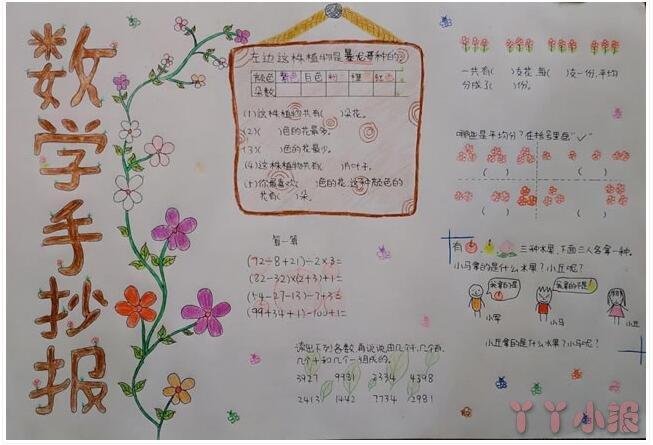 数学手抄报
左边这株植物是暴龙哥种的。
颜色 紫色 白色 粉 橙 红色
朵数
(1)这株植物共有( )朵花。
(2)( )色的花最多。
(3)( )色的花最少。
(4)这株植物共有( )片叶子。
(5)你最喜欢( )色的花,这种颜色的
共有( )朵。
算一算
(92-8+21)÷2×3=
(82-32)×(2+3)+1=
(54-27-13)-7+3=
(99+34+1)-100+1=
读出下列各数,再说说由几个千,几个百,
几个十和几个一组成的。
3927 9931 2334 4398
2413 1442 7734 2981
一共有( )支花,每( )支一份,平均
分成了( )份。
哪些是平均分?在括号里画“✓”
( ) ( )
( ) ( )
有 三种水果,下面三人各拿一种。
小马拿的是什么水果?小丘呢?
我拿的是
我拿的不是
小军 小马 小丘
小丘拿的是什么水果?小马呢?
丫丫小报